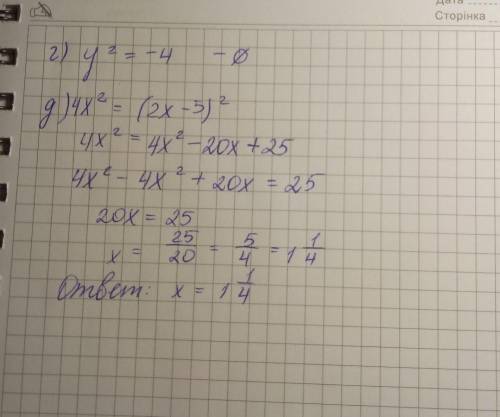 Дата
Сторінка
г) y² = -4 - ∅
д) 4x² = (2x-5)²
4x² = 4x² - 20x + 25
4x² - 4x² + 20x = 25
20x = 25
x = 25/20 = 5/4 = 1 1/4
Ответ: x = 1 1/4